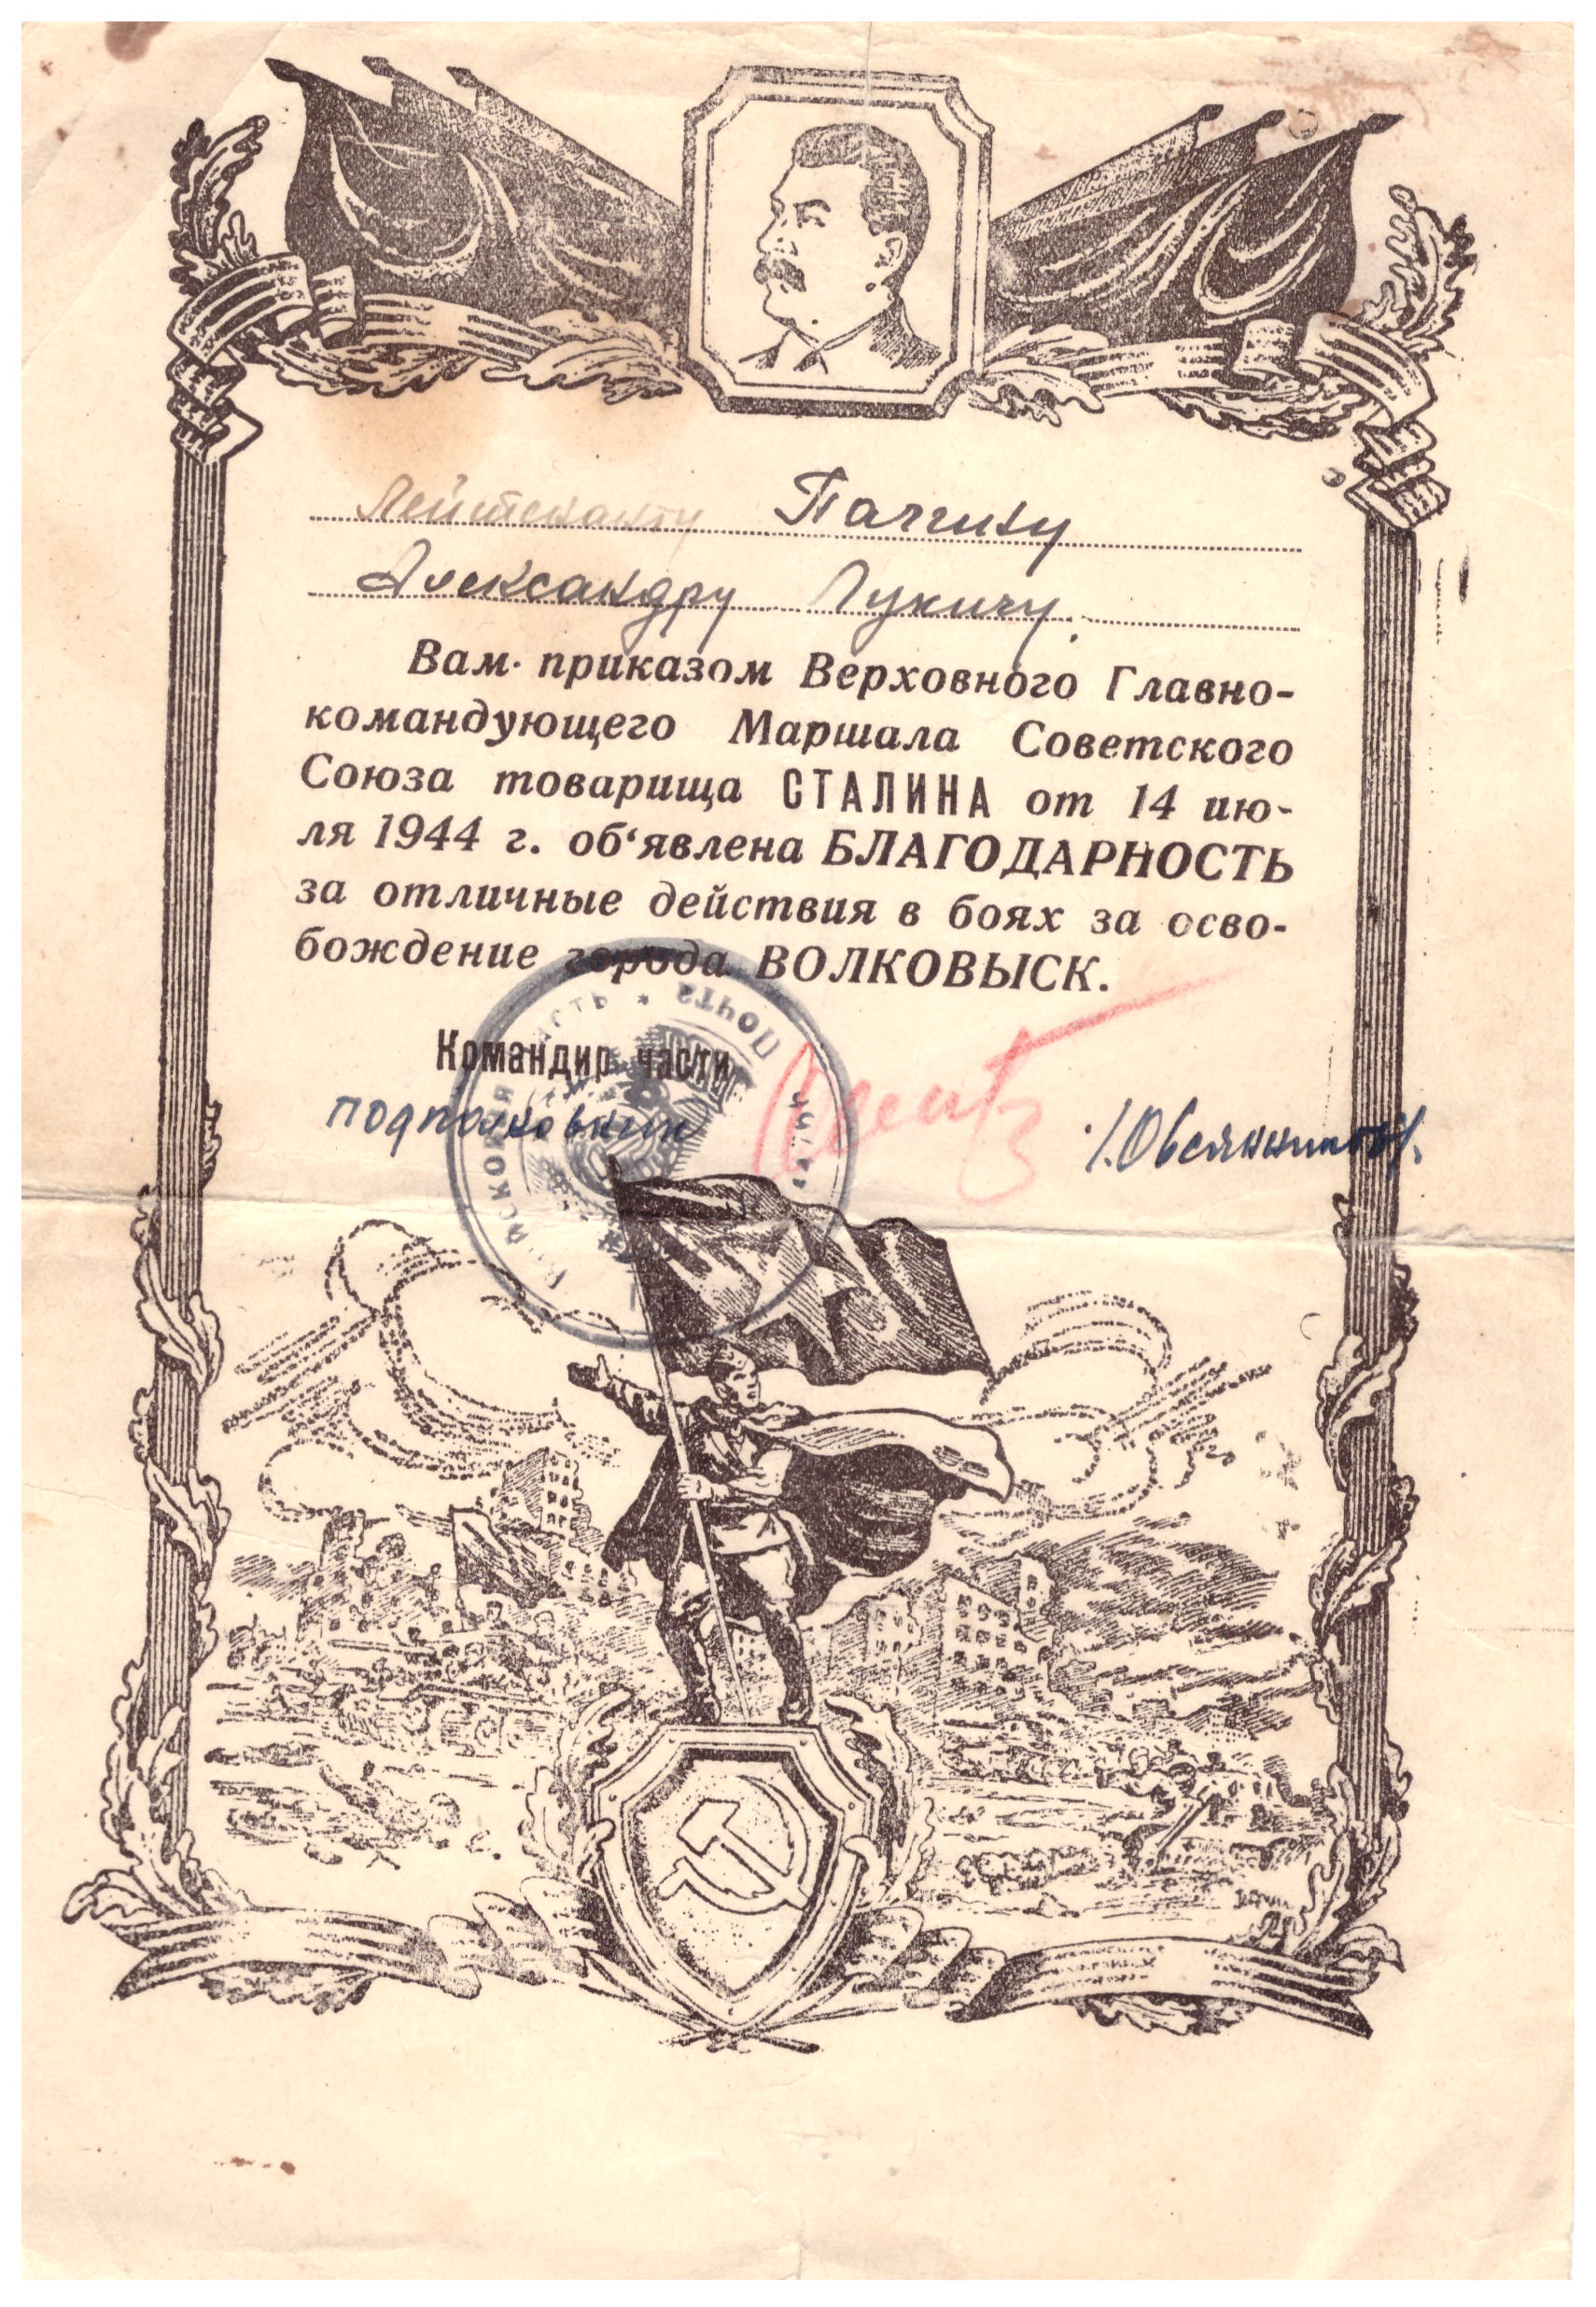 Лейтенанту Паггину
Александру Лукичу.
Вам приказом Верховного Главно-
командующего Маршала Советского
Союза товарища СТАЛИНА от 14 ию-
ля 1944 г. об‘явлена БЛАГОДАРНОСТЬ
за отличные действия в боях за осво-
бождение города ВОЛКОВЫСК.
Командир части
подполковник /Овсянников/.
часть * Полевая почта